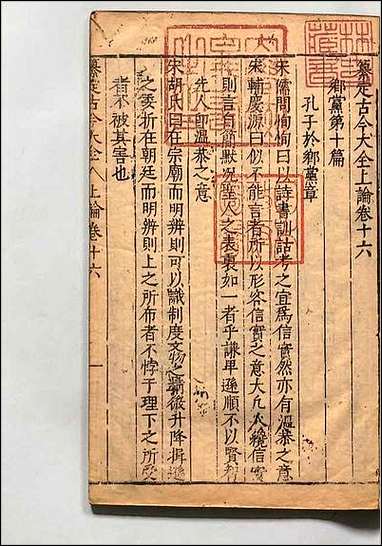 纂定古今大全上論卷十六
鄉黨第十篇
孔子於鄉黨章
宋儒問恂恂曰以詩書訓詁考之宜爲信實然亦有溫恭之意
宋輔慶源曰似不能言者所以形容信實之意大凡人纔信實
則言自簡默况聖人之表裏如一者乎謙卑遜順不以賢知
先人即溫恭之意
宋胡氏曰在宗廟而明辨則可以識制度文物之精微升降揖遜
之委折在朝廷而明辨則上之所布者不悖于理下之所受
者不被其害也
纂定古今大全 上論卷十六 一